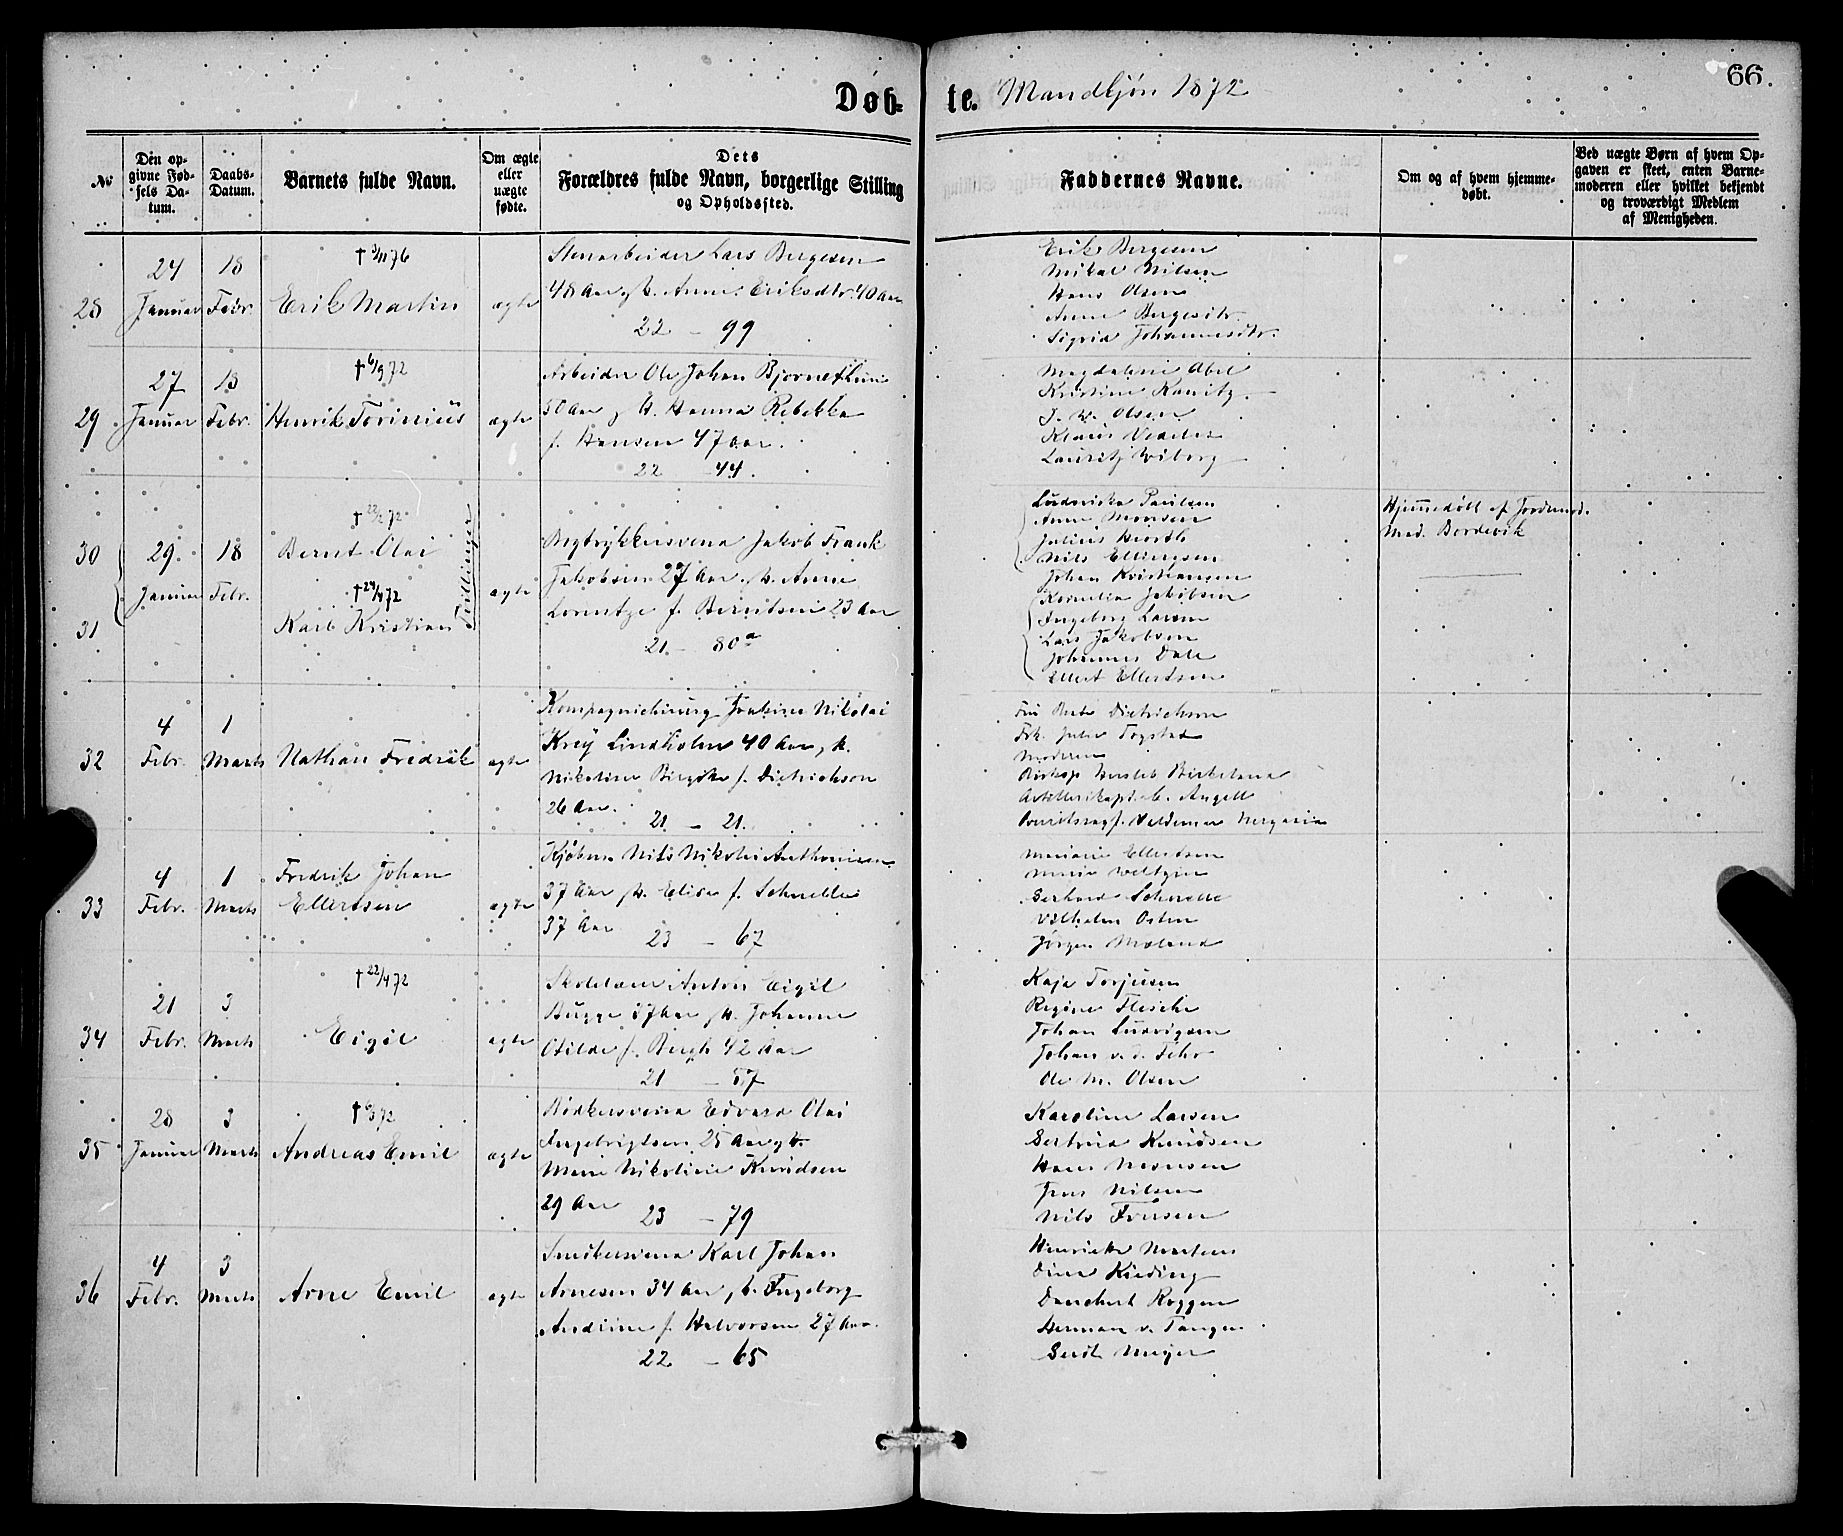 66.
Døb-te. Mandkjøn 1872
No
Den op-
givne Fød-
sels Da-
tum.
Daabs-
Datum.
Barnets fulde Navn.
Om ægte
eller
uægte
fødte.
Dets
Forældres fulde Navn, borgerlige Stilling
og Opholdssted.
Faddernes Navne.
Om og af hvem hjemme-
døbt.
Ved uægte Børn af hvem Op-
gaven er skeet, enten Barne-
moderen eller hvilket bekjendt
og troværdigt Medlem
af Menigheden.
28
24
Januar
18
Febr.
Erik Martin
ægte
Stenarbeider Lars Bergesen
48 Aar, h. Anne Eriksdtr. 40 Aar
22 - 99
Erik Bergesen
Mikal Nilsen
Hans Olsen
Anne Bergesdtr.
Sigrid Johannesdtr.
29
27
Januar
18
Febr.
† 6/9 72
Henrik Torinius
ægte
Arbeider Ole Johan
50 Aar, h. Hanna Rebekka
f. Hansen 47 aar.
22 - 44.
Magdalene Abel
Kristine
J. W. Olsen
Klaus
Lauritz Wiborg
30
31
29
Januar
18
Febr.
† 22/2 72
Bernt Olai
† 24/4 72
Karl Kristian
Tvillinger
ægte
Bogtrykkersvend Jakob Frank
Jakobsen 27 Aar, h. Anne
Lorentze f. Berntsen 23 Aar
21 - 80 a
Ludovika Paulsen
Anne Monsen
Julius
Nils Ellingsen
Johan Kristiansen
Kornelia Jakobsen
Ingeborg Larsen
Lars Jakobsen
Johannes Dale
Ellert Ellertsen
Hjemmedøbt af Jordemod.
Mad. Bordevik
32
4
Febr.
1
Marts
Nathan Fredrik
ægte
Kompagnichirurg Joakim Nikolai
Krey Lindholm 40 Aar, h.
Nikoline Birgithe f. Dietrichson
26 Aar.
21 - 21.
Dietrichson
Frk. Julie Fogstad
Moderen
Biskop Hersleb Birkeland
Artillerikapt. C. Angell
Valdemar
33
4
Febr.
1
Marts
Fredrik Johan
Ellertsen
ægte
Kjøbm. Nils Nikolai Anthonisen
37 Aar, h. Elise f. Schnelle
37 Aar
23 - 67
Mariane Ellertsen
Marie Weltzin
Gerhard Schnelle
Vilhelm Osten
Jørgen Moland
34
21
Febr.
3
Marts
† 22/4 72
Eigil
ægte
Skolelærer Anton Eigil
Bugge 37 Aar, h. Johanne
Otilde f. Bergh 42 Aar
21 - 57
Kaja Torjusen
Regine Flesche
Johan Ludvigsen
Johan v. d. Fehr
Ole M. Olsen
35
28
Januar
3
Marts
Andreas Emil
ægte
Bødkersvend Edvard Olai
Ingebrigtsen 25 Aar, h.
Marie Nikoline Knudsen
29 Aar
23 - 79
Karoline Larsen
Gertrud Knudsen
Hans Monsen
Jens Nilsen
Nils
36
4
Febr.
3
Marts
Arne Emil
ægte
Karl Johan
Arnesen 34 Aar, h. Ingeborg
Andrine f. Halvorsen 27 Aar.
22 - 65
Henriette Martens
Dina Kieding
Danckert Roggen
Herman v. Tangen
Gerdt Meyer